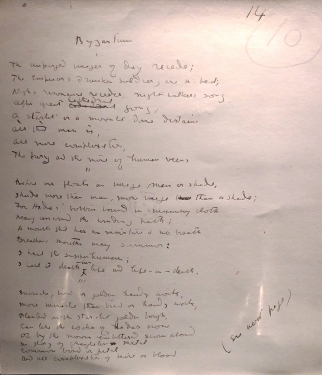 14
10
Byzantium
I
The unpurged images of day recede;
The Emperor's drunken soldiery are a bed;
Night's resonance recedes, night walkers song
after great cathedral gong;
A starlit or a moonlit dome disdains
all man is,
all mere complexities,
The fury and the mire of human veins
II
Before me floats an image man or shade,
Shade more than man, more image than a shade;
For Hades' bobbin bound in mummy cloth
May unwind the winding path;
A mouth that has no moisture & no breath
Breathless mouths may summon:
I hail the superhuman;
I call it death-in-life and life-in-death.
Miracle, bird or golden handy work,
More miracle than bird or handy work,
Planted on the star-lit golden bough,
Can like the cocks of Hades crow
Or by the moon embittered scorn aloud
In glory of changeless metal
Common bird or petal
And all complexities of mire or blood
(see next page)